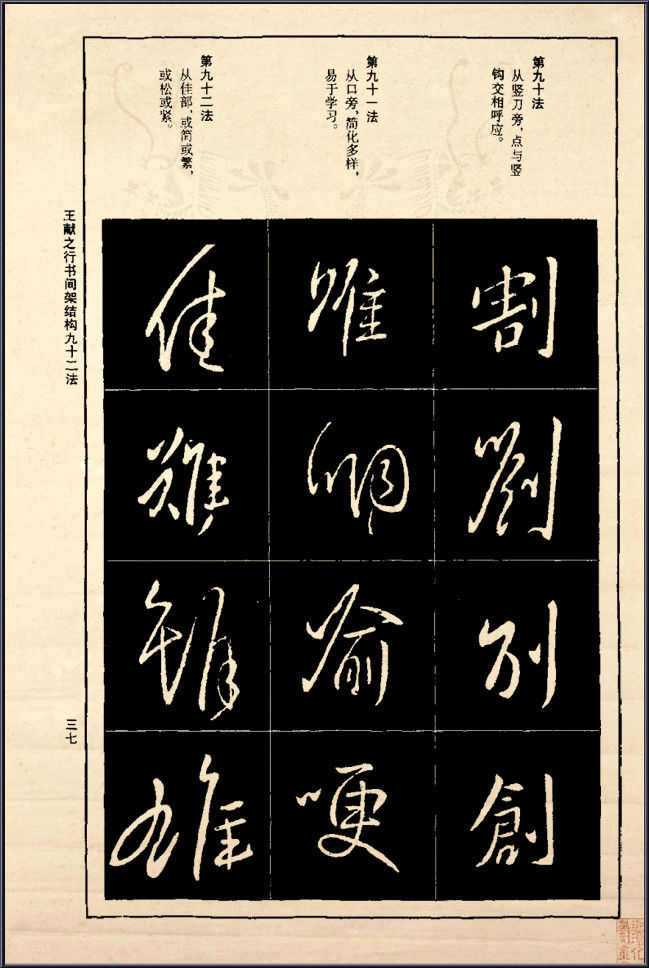 第九十法
从竖刀旁，点与竖
钩交相呼应。
割
劉
别
創
第九十一法
从口旁，简化多样，
易于学习。
唯
喻
哽
第九十二法
从佳部，或简或繁，
或松或紧。
佳
難
雄
王献之行书间架结构九十二法
三七